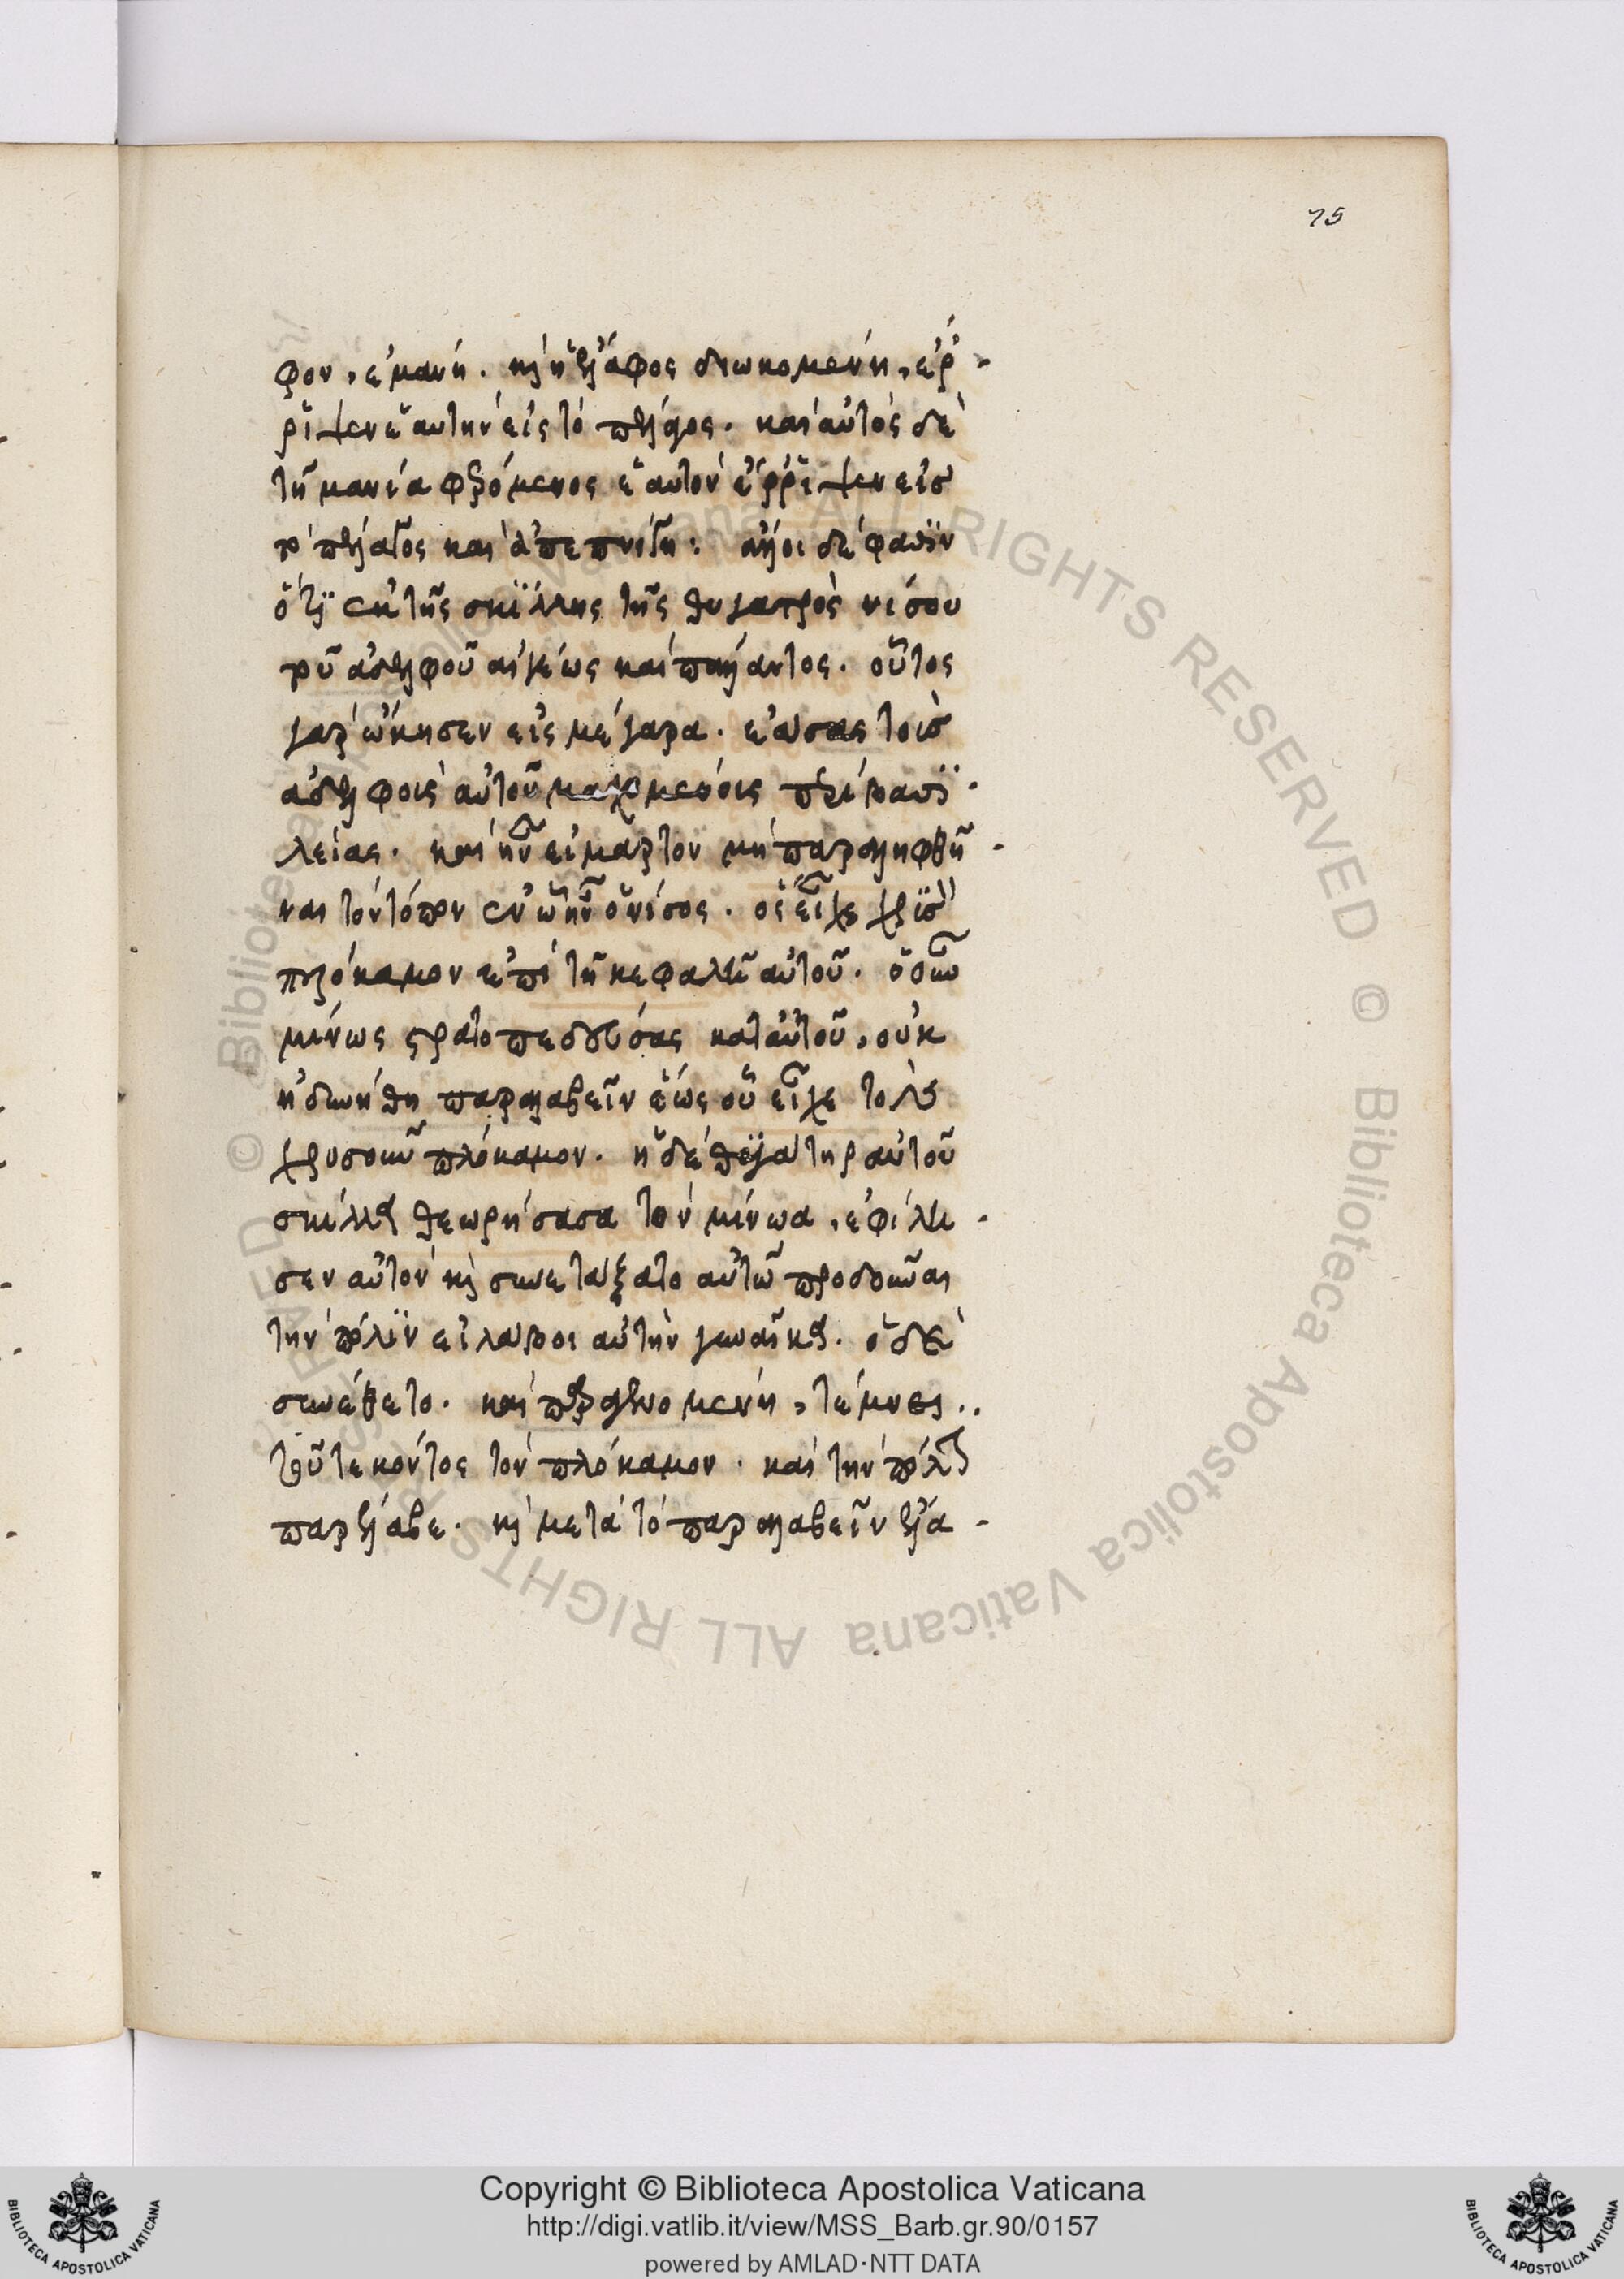 75
φον, ἐμάνη. καὶ ἡ ἔλαφος διωκομένη, ἔρ-
ριψεν ἑαυτὴν εἰς τὸ πέλαγος. καὶ αὐτὸς δὲ
τῇ μανίᾳ φερόμενος ἑαυτὸν ἔρριψεν εἰσ
τὸ πέλαγος καὶ ἀπεπνίγη: ἄλλοι δέ φασϊν
ὅτϊ ἐκ τῆς σκΐλλης τῆς θυγατρὸς νίσου
τοῦ ἀδελφοῦ αἰγέως καὶ πάλλαντος. οὗτος
γὰρ ὤκησεν εἰς μέγαρα. ἐάσας τοῖσ
ἀδελφοῖς αὐτοῦ μαχομένοις περὶ βασϊ-
λείας. καὶ ἦν εἱμαρτον μὴ παραληφθῆ-
ναι τὸν τόπον ἐν ᾧ ἦν ὁ νίσος. ὃς εἶχε χρϋσοῦν
πλόκαμον ἐπὶ τῇ κεφαλῇ αὐτοῦ. ὁ οὖν
μίνως στρατοπεδεύσας κατ αὐτοῦ, οὐκ
ἠδυνήθη παραλαβεῖν ἕως οὗ εἶχε τὸν
χρυσοῦν πλόκαμον. ἡ δὲ θϋγάτηρ αὐτοῦ
σκύλλα θεωρήσασα τὸν μίνωα, ἐφίλη-
σεν αὐτὸν καὶ συνετάξατο αὐτῷ προδοῦναι
τὴν πόλϊν εἰ λάβοι αὐτὴν γυναῖκα. ὁ δὲ
συνέθετο. καὶ παραγενομένη, τέμνει..
τοῦ τεκόντος τὸν πλόκαμον. καὶ τὴν πόλιν
παρέλαβε. καὶ μετὰ τὸ παραλαβεῖν ἔλα-
Copyright © Biblioteca Apostolica Vaticana
http://digi.vatlib.it/view/MSS_Barb.gr.90/0157
powered by AMLAD·NTT DATA